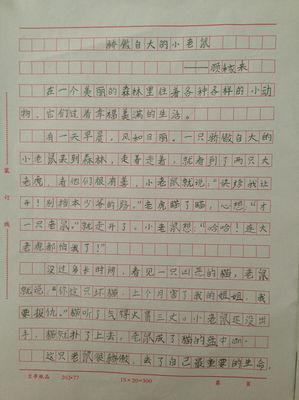 骄傲自大的小老鼠
在一个美丽的森林里住着各种各样的小动
物,它们过着幸福美满的生活。
有一天早晨,风和日丽。一只骄傲自大的
小老鼠来到森林,走着走着,就看到了两只大
老虎,看他们很有
小老鼠就说:“快给我让
开!别挡本少爷的路。”老虎瞄了瞄,心想:“才
一只老鼠。”就走开了。小老鼠想:“哈哈!连大
老虎都怕我了!”
没过多长时间,看见一只凶恶的猫,老鼠
就说:“你这只坏猫,上个月害了我的姐姐,我
要报仇。”猫听了气得火冒三丈。小老鼠还没出
手,猫就扑了上去,老鼠成了猫的盘中
这只老鼠很骄傲,丢了自己最重要的生命。
装
订
线
15×20=300